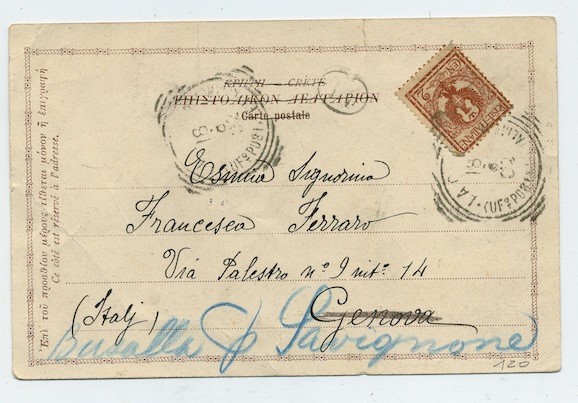 ΚΡΗΤΗ — CRÈTE
ΕΠΙΣΤΟΛΙΚΟΝ ΔΕΛΤΑΡΙΟΝ
Carte postale
Esimia Signorina
Francesca Ferraro
Via Palestro nº 9 intº 14
(Italj) Genova
Busalla p Savignone
120
Ἐπὶ τοῦ προσθίου μέρους τίθεται μόνον ἡ ἐπιγραφή
Ce côté est réservé à l'adresse.